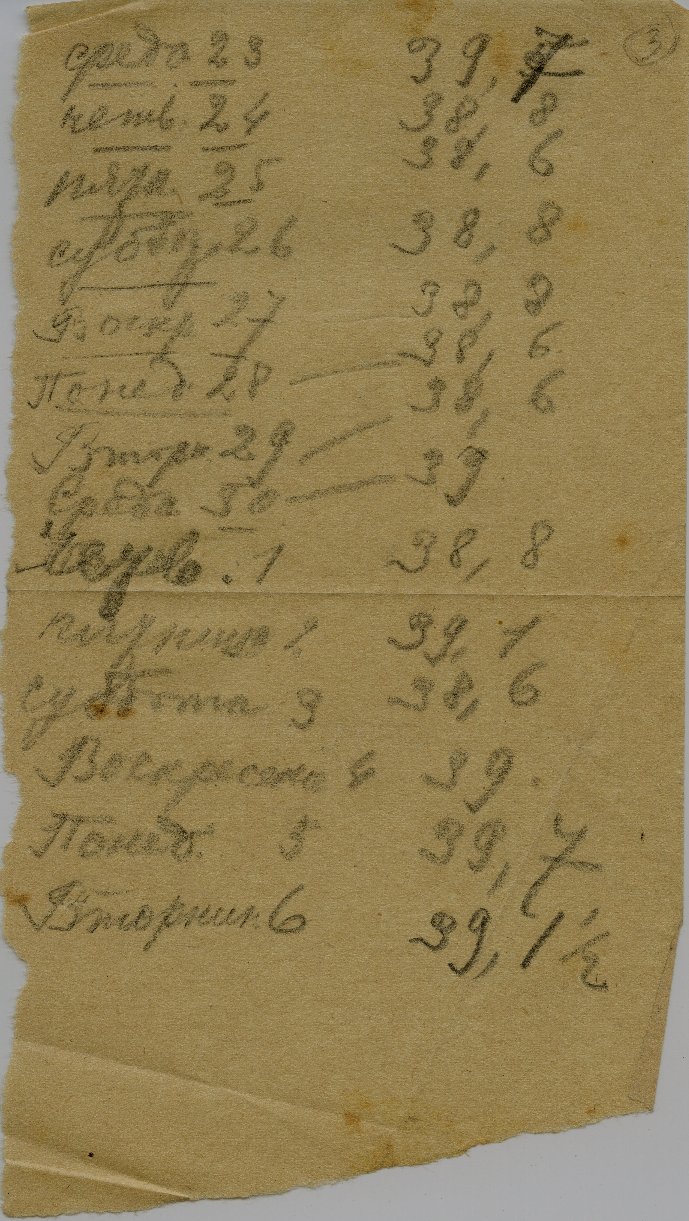 3
среда 23 39,7
четв. 24 38,8
пятн. 25 38,6
суббот. 26 38,8
Воскр 27 38,8
Понед 28 38,6
Вторн 29 38,6
Среда 30 39
Четв. 1 38,8
пятница 2 39,1
суббота 3 38,6
Воскресень 4 39.
Понед. 5 39,7
Вторник 6 39,1 ½